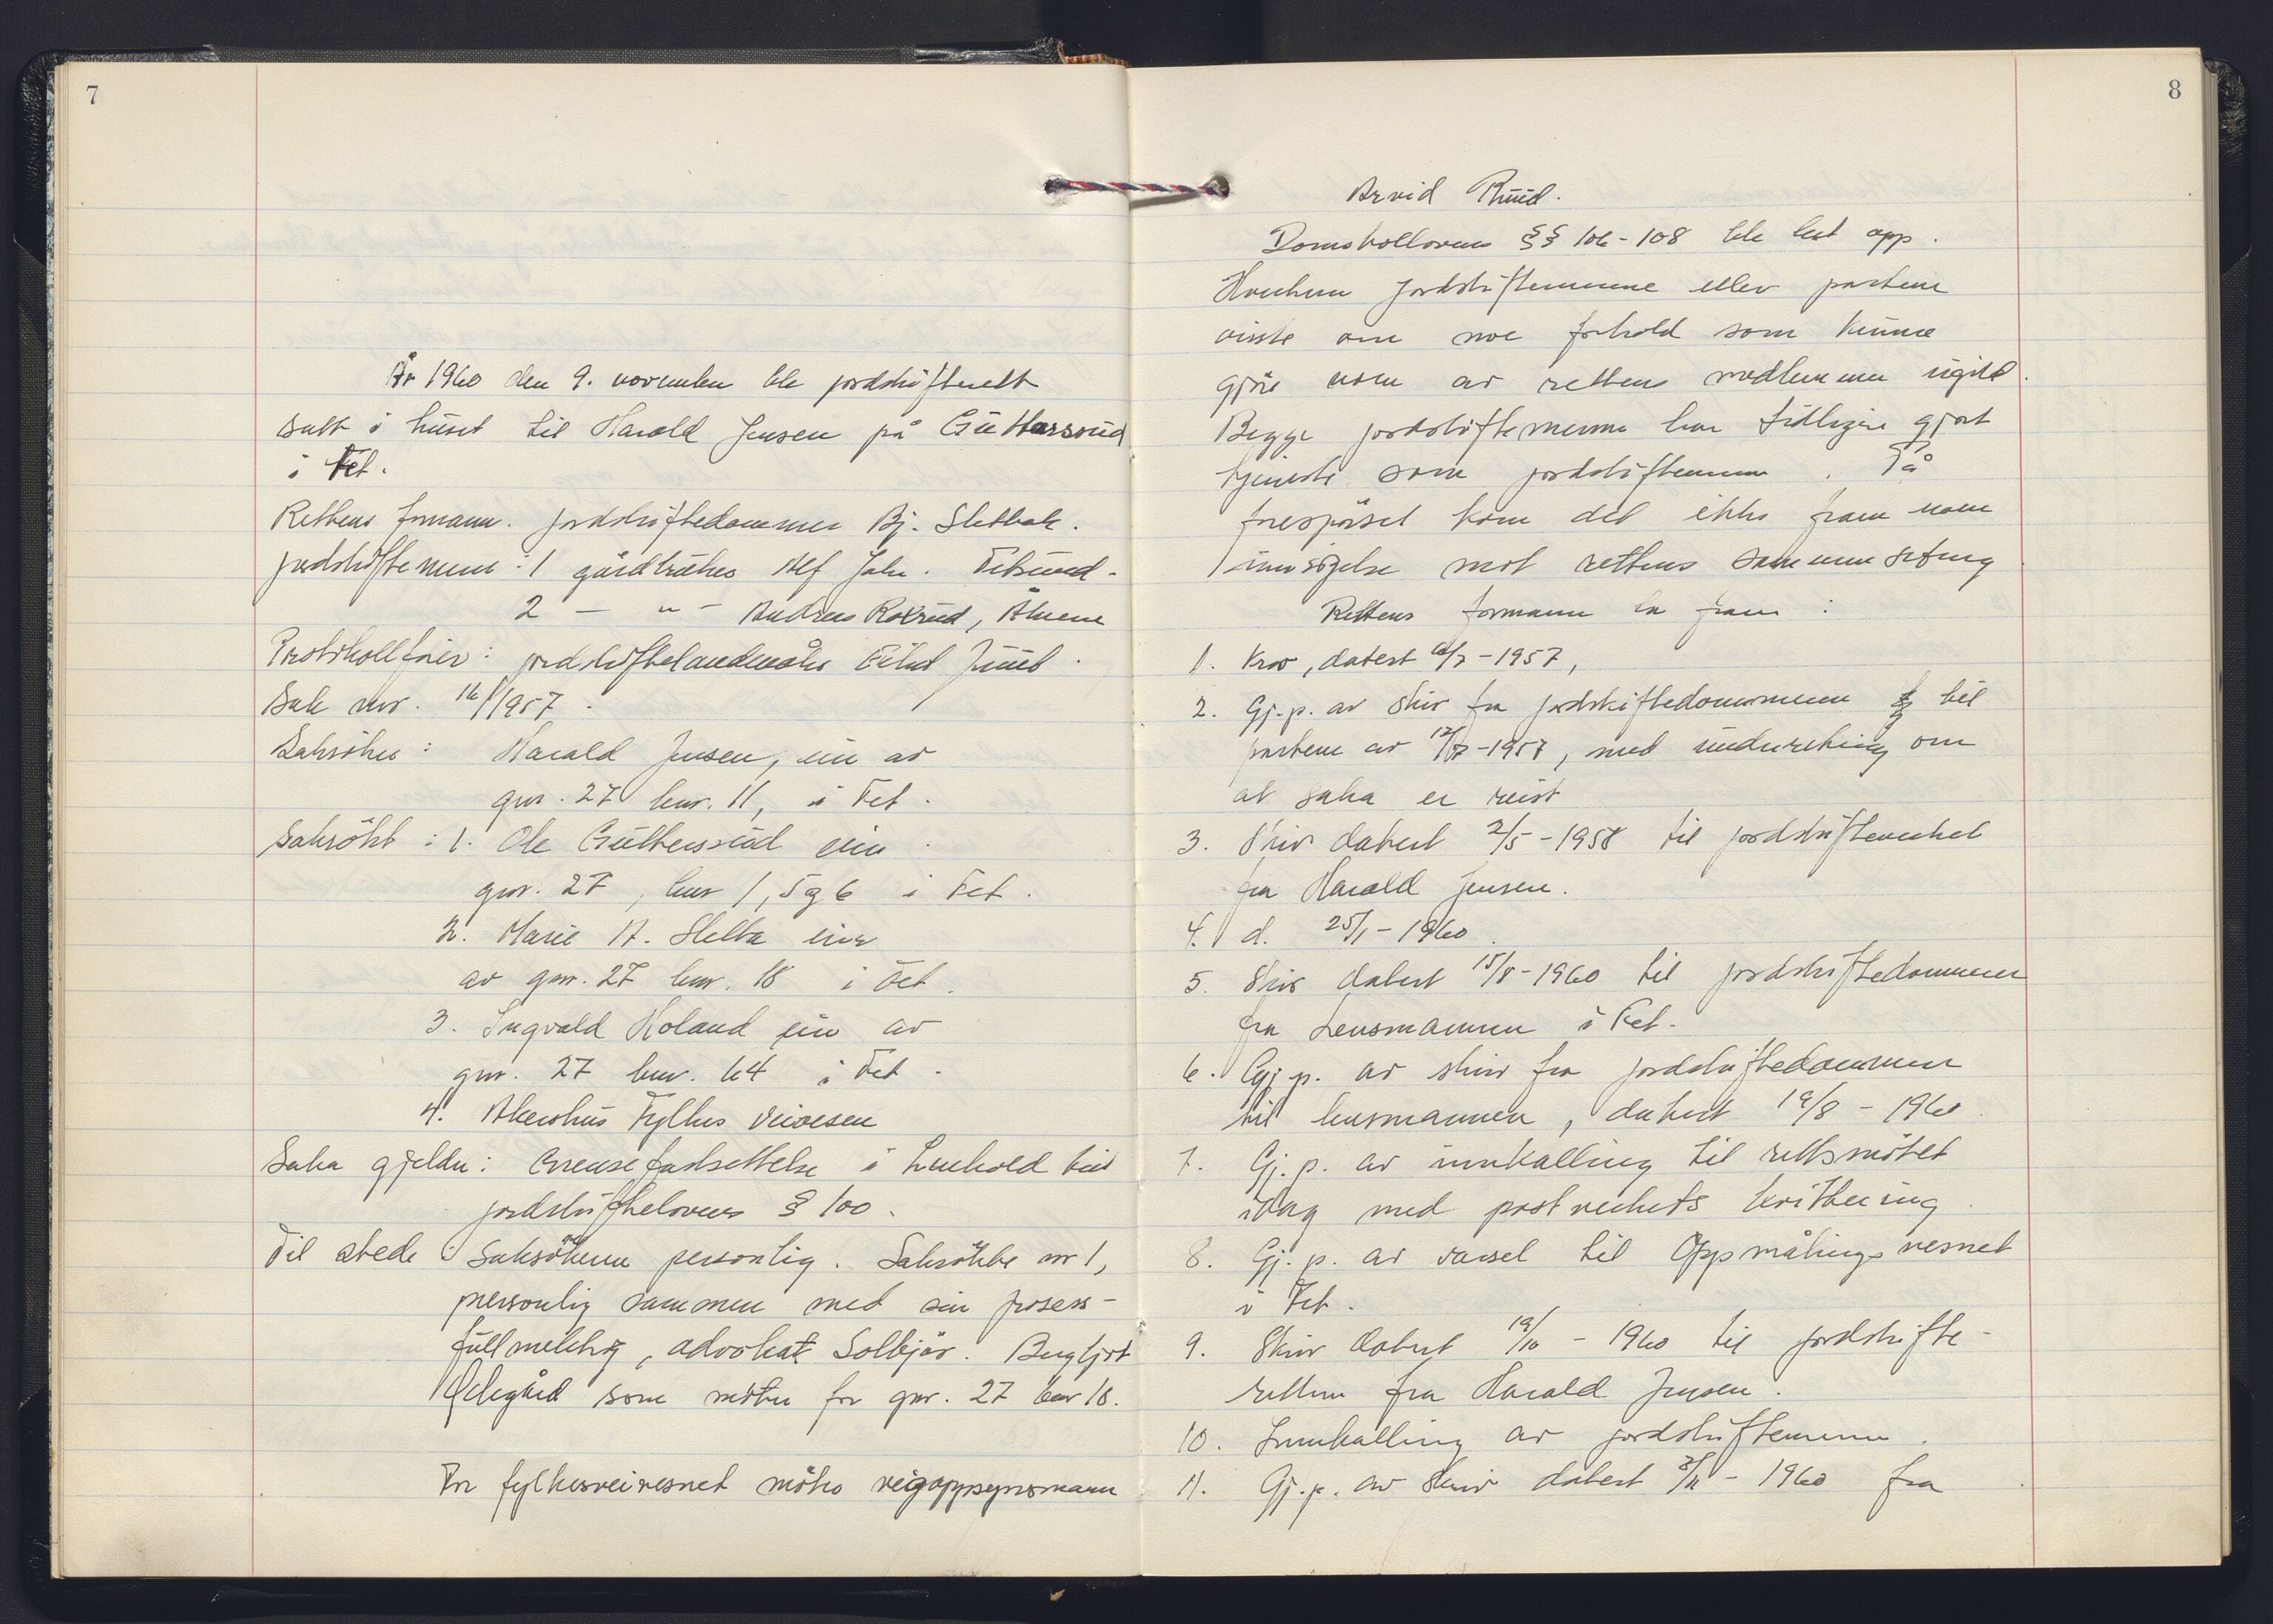 7
År 1960 den 9. november ble jordskifterett
satt i huset til Harald Jensen på Guttersrud
i Fet.
Rettens formann. jordskiftedommer Bj. Sletbak.
jordskiftemenn: 1 gårdbruker Alf Jahr. Fetsund.
2 — " — Andreas Rokrud, Ånene
Protokollfører: jordskiftelandmåler Juul.
Sak nr. 16/1957.
Saksöker: Harald Jensen, eier av
gnr. 27 bnr. 11, i Fet.
Saksökt: 1. Ole Guttersrud eier
gnr. 27, bnr 1, 5 og 6 i Fet.
2. Marie A. Sletta eier
av gnr. 27 bnr. 18 i Fet.
3. Ingvald Holand eier av
gnr. 27 bnr. 64 i Fet.
4. Akershus Fylkes veivesen
Saka gjelder: Grensefastsettelse i henhold til
jordskiftelovens § 100.
Til stede: Saksökeren personlig. Saksökte nr 1,
personlig sammen med sin prosess-
fullmektig, advokat Solbjör. Bergljot
som möter for gnr. 27 bnr 18.
For fylkesveivesnet möter veioppsynsmann
8
Arvid Ruud.
Domstollovens §§ 106-108 ble lest opp.
Hverken jordskiftemenne eller partene
visste om noe forhold som kunne
gjöre noen av rettens medlemmer ugild.
Begge jordskiftemenne har tidligere gjort
tjeneste som jordskiftemenn. På
forespörsel kom det ikke fram noen
innsigelse mot rettens sammensetning
Rettens formann la fram:
1. Krav, datert 6/7-1957,
2. Gj.p. av skriv fra jordskiftedommeren til
partene av 12/7-1957, med underretning om
at saka er reist
3. Skriv datert 2/5-1958 til jordskifteverket
fra Harald Jensen.
4. d. 25/1-1960.
5. Skriv datert 15/8-1960 til jordskiftedommeren
fra Lensmannen i Fet.
6. Gj.p. av skriv fra jordskiftedommeren
til lensmannen, datert 19/8-1960.
7. Gj.p. av innkalling til rettsmötet
idag med postverkets kvittering
8. Gj.p. av varsel til Oppmålingsvesnet
i Fet.
9. Skriv datert 19/10-1960 til jordskifte-
retten fra Harald Jensen.
10. Innkalling av jordskiftemenn.
11. Gj.p. av skriv datert 3/11-1960 fra